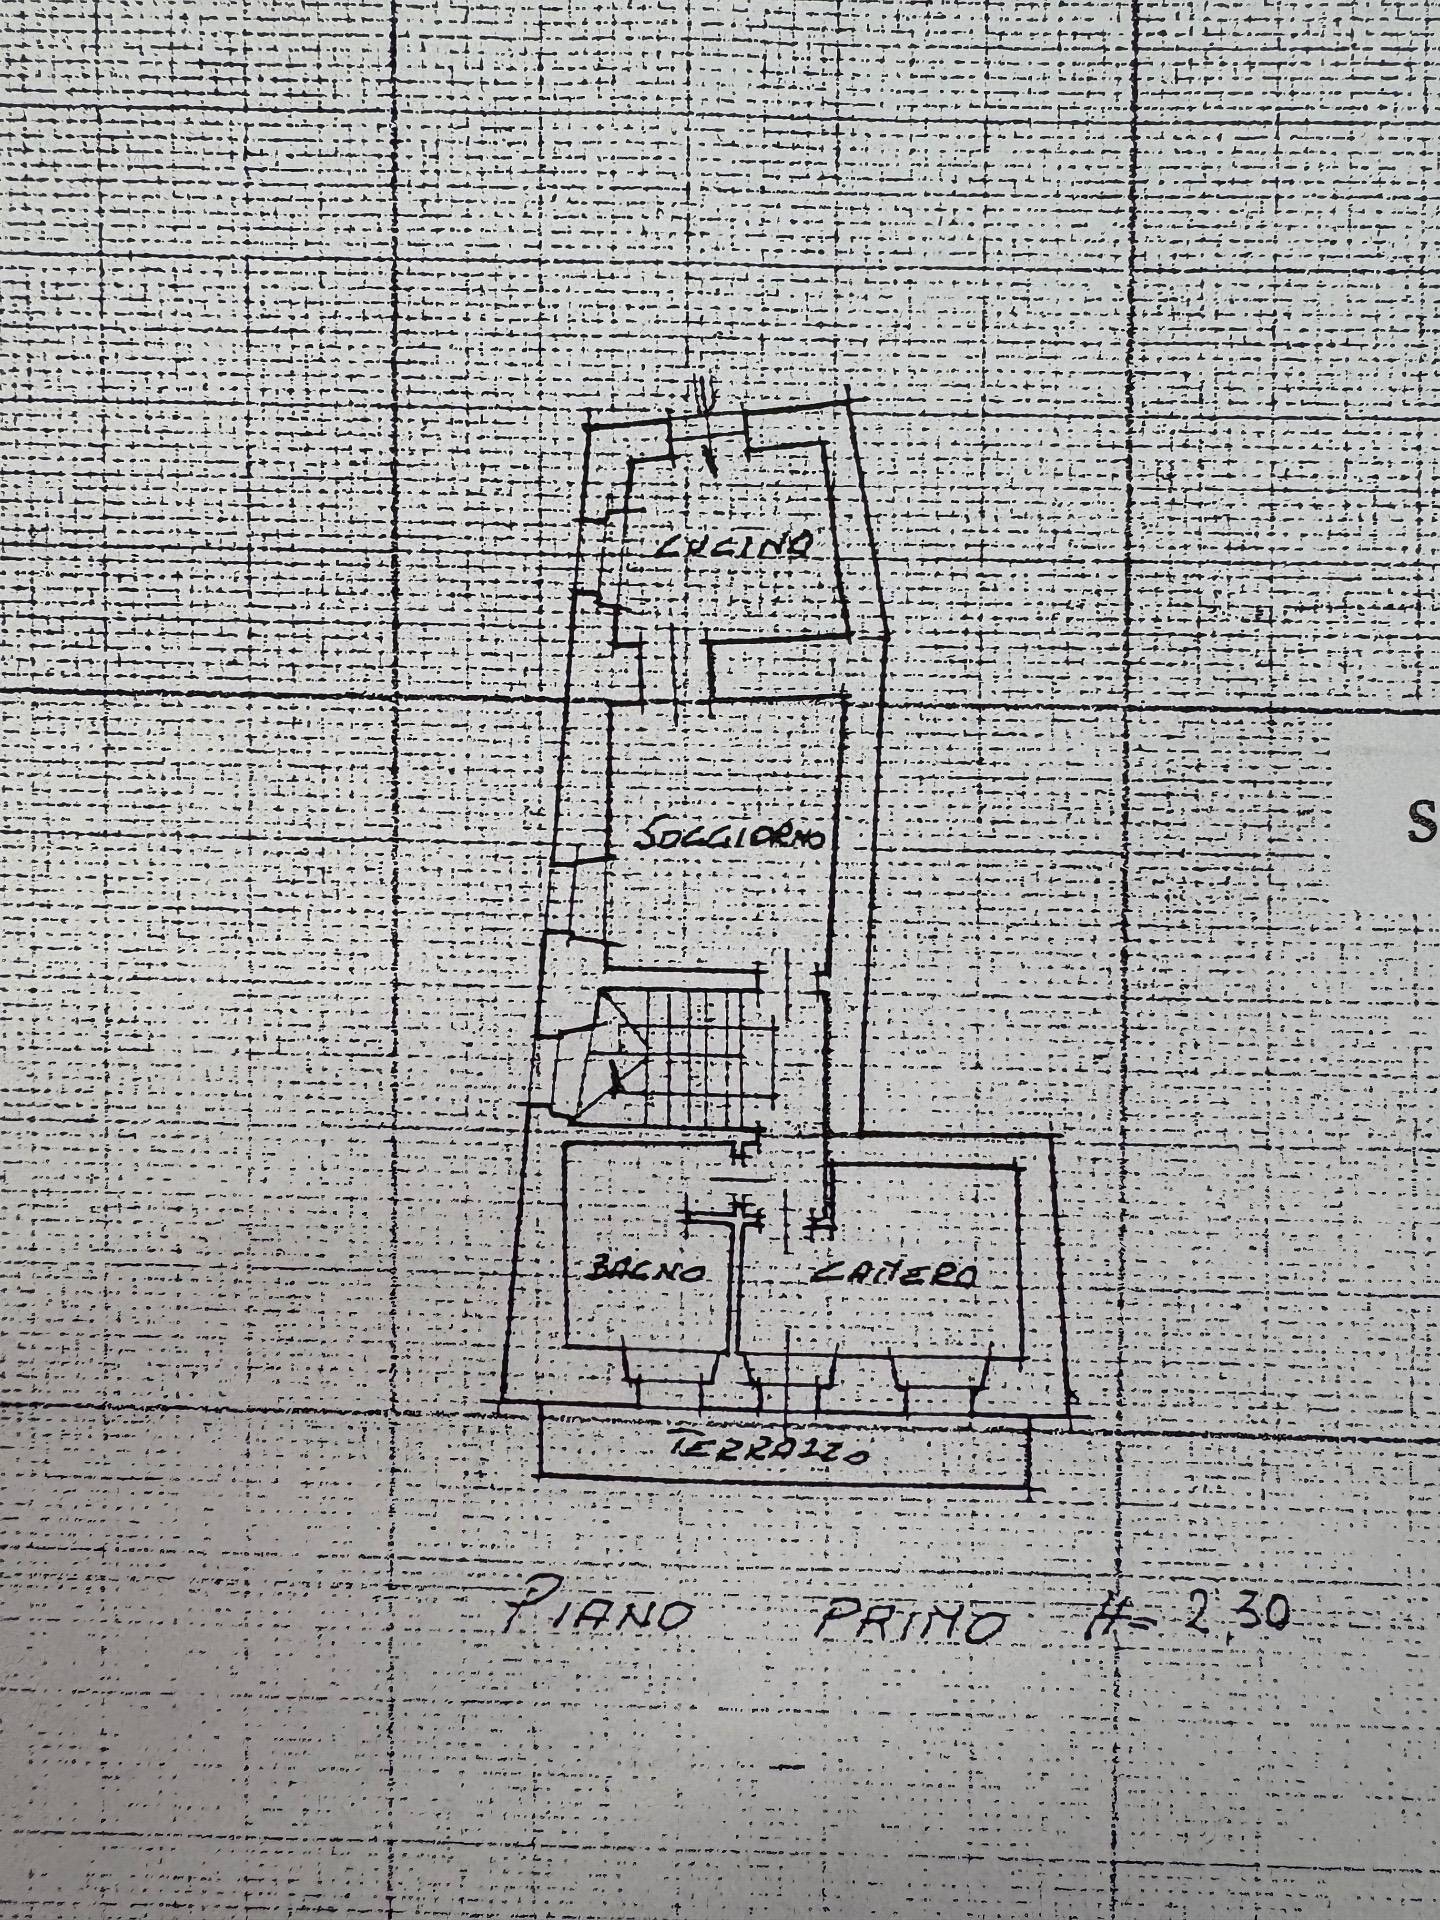 CUCINA
SOGGIORNO
S
BAGNO
CAMERA
TERRAZZO
PIANO PRIMO H= 2,30